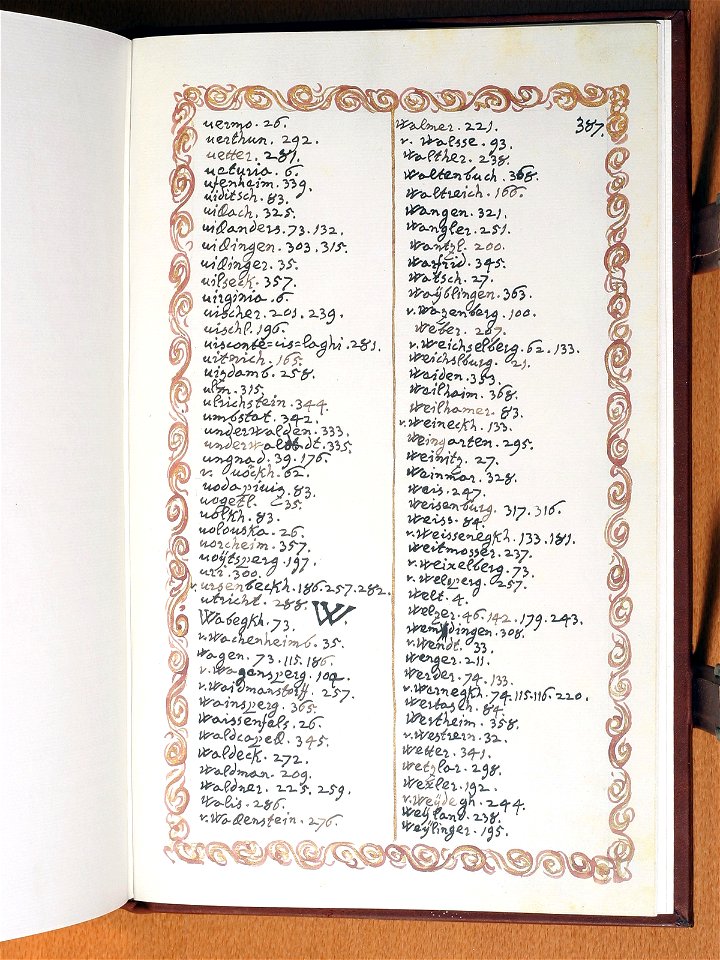 uermo. 26.
uerthun. 292.
uetter. 281.
ueturia. 6.
ufenheim. 339.
uiditsch. 83.
uidach. 325.
uidanders. 73. 132.
uidingen. 303. 315.
uidinger. 35.
uilseck. 357.
uirginia. 6.
uischer. 201. 239.
uischl. 196.
uisconte=uis=laghi. 281.
uitrich. 165.
uizdamb. 258.
ulm. 315.
ulrichstein. 344.
umbstat. 342.
underwalden. 333.
335.
ungnad. 39. 176.
v. uöckh. 62.
83.
uogetl. 35.
uolkh. 83.
uolouska. 26.
uorcheim. 357.
uoÿtsperg. 197.
uri. 300.
v. ursenbeckh. 186. 257. 282.
utricht. 288.
W.
Wabegkh. 73.
v. Wachenheimb. 35.
Wagen. 73. 115. 186.
v. Wagensperg. 102.
v. Waidmanstorff. 257.
Wainsperg. 365.
Waissenfels. 26.
Waldcapel. 345.
Waldeck. 272.
Waldman. 209.
Waldner. 225. 259.
Walis. 286.
v. Wadenstein. 276.
387.
Walmer. 221.
v. Walsse. 93.
Walther. 238.
Waltenbuch. 368.
Waltreich. 166.
Wangen. 321.
Wangler. 251.
Wantzl. 200.
Warfrid. 345.
Watsch. 27.
Waÿblingen. 363.
v. Wazenberg. 100.
Weber. 207.
v. Weichselberg. 62. 133.
Weichslburg. 21.
Waiden. 353.
Wailhaim. 368.
Weilhamer. 83.
v. Weineckh. 133.
Weingarten. 295.
Weinitz. 27.
Wainmar. 328.
Weis. 247.
Weisenburg. 317. 316.
Weiss. 84.
v. Weissenegkh. 133. 181.
Weitmosser. 237.
v. Weixelberg. 73.
v. Welsperg. 257.
Welt. 4.
Welzer. 46. 142. 179. 243.
308.
v. Wendt. 33.
Werger. 211.
Werder. 74. 133.
v. Warnegkh. 74. 115. 116. 220.
Wertasch. 84.
Wertheim. 358.
v. Westrern. 32.
Wetter. 341.
Wetzlar. 298.
Wexler. 192.
v. Weÿdegh. 244.
Weÿland. 238.
Weÿlinger. 195.